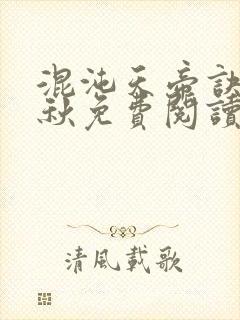 混沌天帝訣
秋免費閱讀
清風載歌